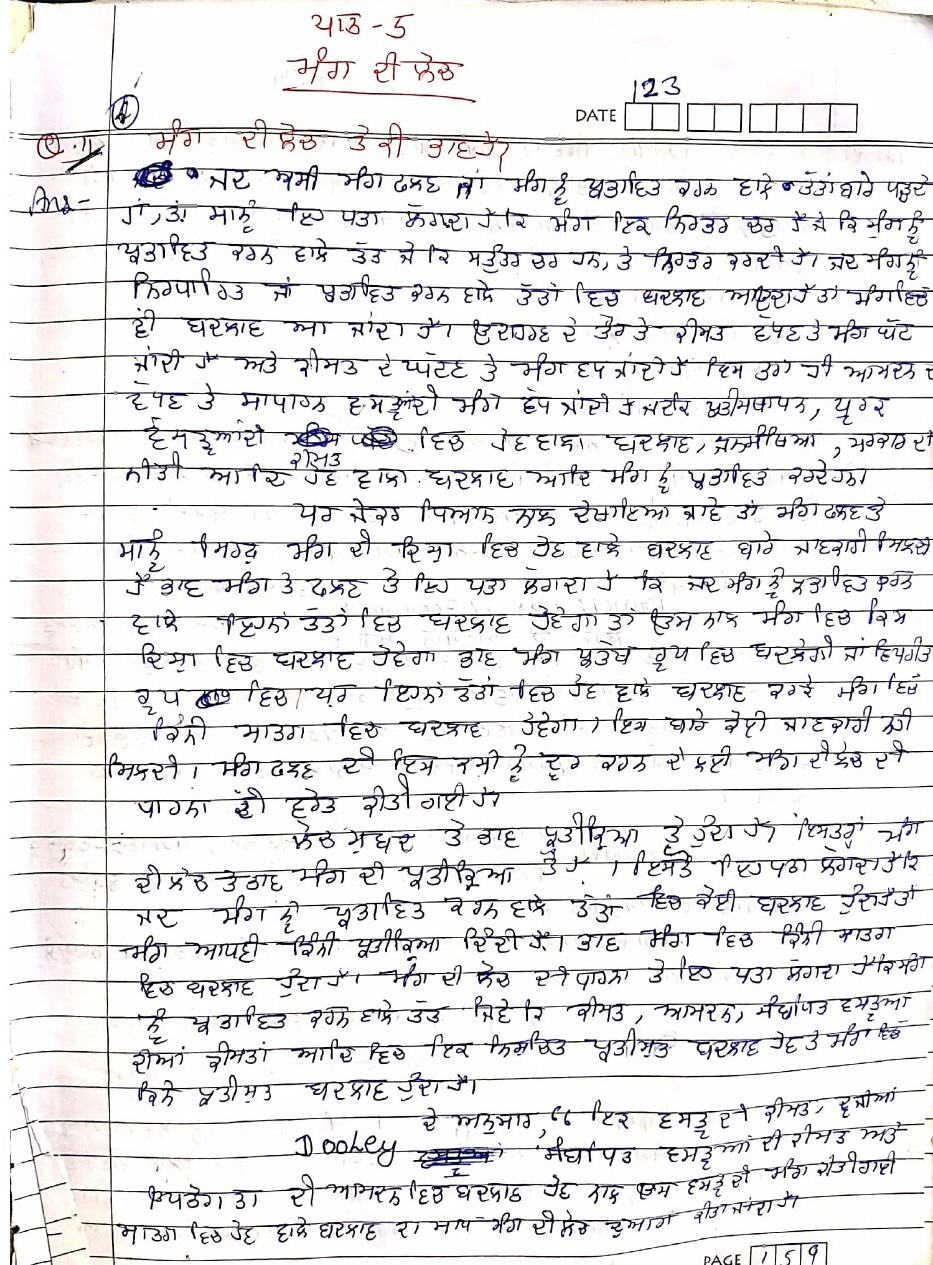 ਪਾਠ - 5
ਮੰਗ ਦੀ ਲੋਚ
123
DATE
Q.1 ਮੰਗ ਦੀ ਲੋਚ ਤੋਂ ਕੀ ਭਾਵ ਹੈ?
Ans- ਜਦ ਅਸੀਂ ਮੰਗ ਫਲਣ ਜਾਂ ਮੰਗ ਨੂੰ ਪ੍ਰਭਾਵਿਤ ਕਰਨ ਵਾਲੇ ਤੱਤਾਂ ਬਾਰੇ ਪੜ੍ਹਦੇ
ਹਾਂ, ਤਾਂ ਸਾਨੂੰ ਇਹ ਪਤਾ ਲੱਗਦਾ ਹੈ ਕਿ ਮੰਗ ਇਕ ਨਿਰਭਰ ਚਰ ਹੈ ਜੋ ਕਿ ਮੰਗ ਨੂੰ
ਪ੍ਰਭਾਵਿਤ ਕਰਨ ਵਾਲੇ ਤੱਤ ਜੋ ਕਿ ਸਤੰਤਰ ਚਰ ਹਨ, ਤੇ ਨਿਰਭਰ ਕਰਦੀ ਹੈ। ਜਦ ਮੰਗ ਨੂੰ
ਨਿਰਧਾਰਿਤ ਜਾਂ ਪ੍ਰਭਾਵਿਤ ਕਰਨ ਵਾਲੇ ਤੱਤਾਂ ਵਿਚ ਬਦਲਾਵ ਆਉਂਦਾ ਹੈ ਤਾਂ ਮੰਗ ਵਿਚ
ਵੀ ਬਦਲਾਵ ਆ ਜਾਂਦਾ ਹੈ। ਉਦਾਹਰਣ ਦੇ ਤੌਰ ਤੇ ਕੀਮਤ ਵੱਧਣ ਤੇ ਮੰਗ ਘੱਟ
ਜਾਂਦੀ ਹੈ ਅਤੇ ਕੀਮਤ ਦੇ ਘੱਟਣ ਤੇ ਮੰਗ ਵਧ ਜਾਂਦੀ ਹੈ ਇਸ ਤਰਾਂ ਹੀ ਆਮਦਨ ਦੇ
ਵੱਧਣ ਤੇ ਸਾਧਾਰਨ ਵਸਤੂਆਂ ਦੀ ਮੰਗ ਵੱਧ ਜਾਂਦੀ ਹੈ ਜਦਕਿ ਪ੍ਰਤੀਸਥਾਪਨ, ਪੂਰਕ
ਵਸਤੂਆਂ ਦੀ ਕੀਮਤ ਵਿਚ ਹੋਣ ਵਾਲਾ ਬਦਲਾਵ, ਜਨਸੰਖਿਆ, ਸਰਕਾਰ ਦੀ
ਨੀਤੀ ਆਦਿ ਹੋਣ ਵਾਲਾ ਬਦਲਾਵ ਆਦਿ ਮੰਗ ਨੂੰ ਪ੍ਰਭਾਵਿਤ ਕਰਦੇ ਹਨ।
ਪਰ ਜੇਕਰ ਧਿਆਨ ਨਾਲ ਦੇਖਾਇਆ ਜਾਵੇ ਤਾਂ ਮੰਗ ਫਲਣ ਤੇ
ਸਾਨੂੰ ਸਿਰਫ਼ ਮੰਗ ਦੀ ਦਿਸ਼ਾ ਵਿਚ ਹੋਣ ਵਾਲੇ ਬਦਲਾਵ ਬਾਰੇ ਜਾਣਕਾਰੀ ਮਿਲਦੀ
ਹੈ ਭਾਵ ਮੰਗ ਤੇ ਫਲਣ ਤੇ ਇਹ ਪਤਾ ਲੱਗਦਾ ਹੈ ਕਿ ਜਦ ਮੰਗ ਨੂੰ ਪ੍ਰਭਾਵਿਤ ਕਰਨ
ਵਾਲੇ ਇਹਨਾਂ ਤੱਤਾਂ ਵਿਚ ਬਦਲਾਵ ਹੋਵੇਗਾ ਤਾਂ ਉਸ ਨਾਲ ਮੰਗ ਵਿਚ ਕਿਸ
ਦਿਸ਼ਾ ਵਿਚ ਬਦਲਾਵ ਹੋਵੇਗਾ ਭਾਵ ਮੰਗ ਪ੍ਰਤੱਖ ਰੂਪ ਵਿਚ ਬਦਲੇਗੀ ਜਾਂ ਵਿਪਰੀਤ
ਰੂਪ ਵਿਚ। ਪਰ ਇਹਨਾਂ ਤੱਤਾਂ ਵਿਚ ਹੋਣ ਵਾਲੇ ਬਦਲਾਵ ਕਰਕੇ ਮੰਗ ਵਿਚ
ਕਿੰਨੀ ਮਾਤਰਾ ਵਿਚ ਬਦਲਾਵ ਹੋਵੇਗਾ। ਇਸ ਬਾਰੇ ਕੋਈ ਜਾਣਕਾਰੀ ਨਹੀਂ
ਮਿਲਦੀ। ਮੰਗ ਫਲਣ ਦੀ ਇਸ ਕਮੀ ਨੂੰ ਦੂਰ ਕਰਨ ਦੇ ਲਈ ਮੰਗ ਦੀ ਲੋਚ ਦੀ
ਧਾਰਨਾ ਦੀ ਵਰਤੋਂ ਕੀਤੀ ਗਈ ਹੈ।
ਲੋਚ ਸ਼ਬਦ ਤੋਂ ਭਾਵ ਪ੍ਰਤੀਕ੍ਰਿਆ ਤੋਂ ਹੁੰਦਾ ਹੈ। ਇਸਤਰ੍ਹਾਂ ਮੰਗ
ਦੀ ਲੋਚ ਤੋਂ ਭਾਵ ਮੰਗ ਦੀ ਪ੍ਰਤੀਕ੍ਰਿਆ ਤੋਂ ਹੈ। ਇਸਤੋਂ ਇਹ ਪਤਾ ਲੱਗਦਾ ਹੈ ਕਿ
ਜਦ ਮੰਗ ਨੂੰ ਪ੍ਰਭਾਵਿਤ ਕਰਨ ਵਾਲੇ ਤੱਤਾਂ ਵਿਚ ਕੋਈ ਬਦਲਾਵ ਹੁੰਦਾ ਹੈ ਤਾਂ
ਮੰਗ ਆਪਣੀ ਕਿੰਨੀ ਪ੍ਰਤੀਕ੍ਰਿਆ ਦਿੰਦੀ ਹੈ। ਭਾਵ ਮੰਗ ਵਿਚ ਕਿੰਨੀ ਮਾਤਰਾ
ਵਿਚ ਬਦਲਾਵ ਹੁੰਦਾ ਹੈ। ਮੰਗ ਦੀ ਲੋਚ ਦੀ ਧਾਰਨਾ ਤੋਂ ਇਹ ਪਤਾ ਲੱਗਦਾ ਹੈ ਕਿ ਮੰਗ
ਨੂੰ ਪ੍ਰਭਾਵਿਤ ਕਰਨ ਵਾਲੇ ਤੱਤ ਜਿਵੇਂ ਕਿ ਕੀਮਤ, ਆਮਦਨ, ਸੰਬੰਧਿਤ ਵਸਤੂਆਂ
ਦੀਆਂ ਕੀਮਤਾਂ ਆਦਿ ਵਿਚ ਇਕ ਨਿਸਚਿਤ ਪ੍ਰਤੀਸ਼ਤ ਬਦਲਾਵ ਹੋਣ ਤੇ ਮੰਗ ਵਿਚ
ਕਿੰਨੇ ਪ੍ਰਤੀਸ਼ਤ ਬਦਲਾਵ ਹੁੰਦਾ ਹੈ।
Dooley ਦੇ ਅਨੁਸਾਰ, "ਇਕ ਵਸਤੂ ਦੀ ਕੀਮਤ, ਦੂਜੀਆਂ
ਸੰਬੰਧਿਤ ਵਸਤੂਆਂ ਦੀ ਕੀਮਤ ਅਤੇ
ਉਪਭੋਗਤਾ ਦੀ ਆਮਦਨ ਵਿਚ ਬਦਲਾਵ ਹੋਣ ਨਾਲ ਉਸ ਵਸਤੂ ਦੀ ਮੰਗ ਕੀਤੀ ਗਈ
ਮਾਤਰਾ ਵਿਚ ਹੋਣ ਵਾਲੇ ਬਦਲਾਵ ਦਾ ਮਾਪ ਮੰਗ ਦੀ ਲੋਚ ਦੁਆਰਾ ਕੀਤਾ ਜਾਂਦਾ ਹੈ।
PAGE 159